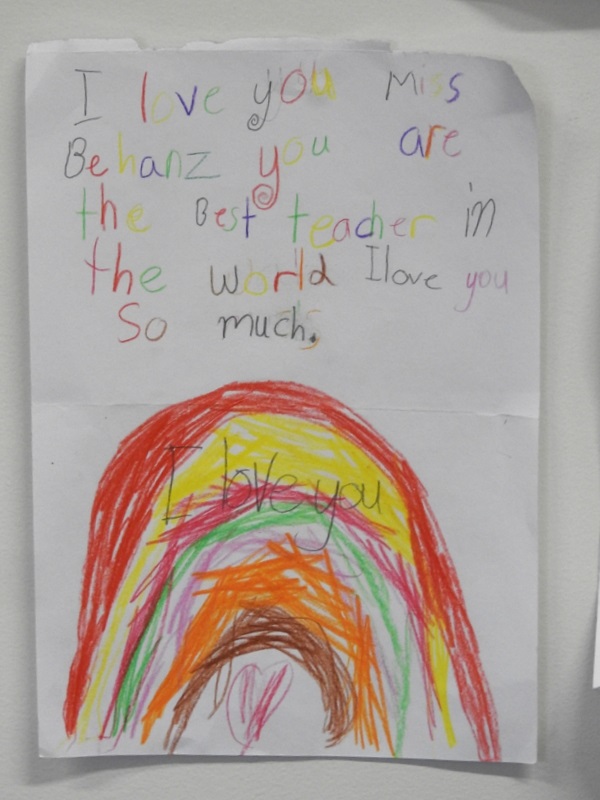 I love you Miss
Behanz you are
the Best teacher in
the world I love you
So much.
I love you